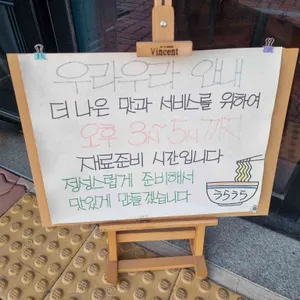 Vincent
우라우라 안내
더 나은 맛과 서비스를 위하여
오후 3시~5시까지
재료준비 시간입니다
정성스럽게 준비해서
맛있게 만들겠습니다
우라우라